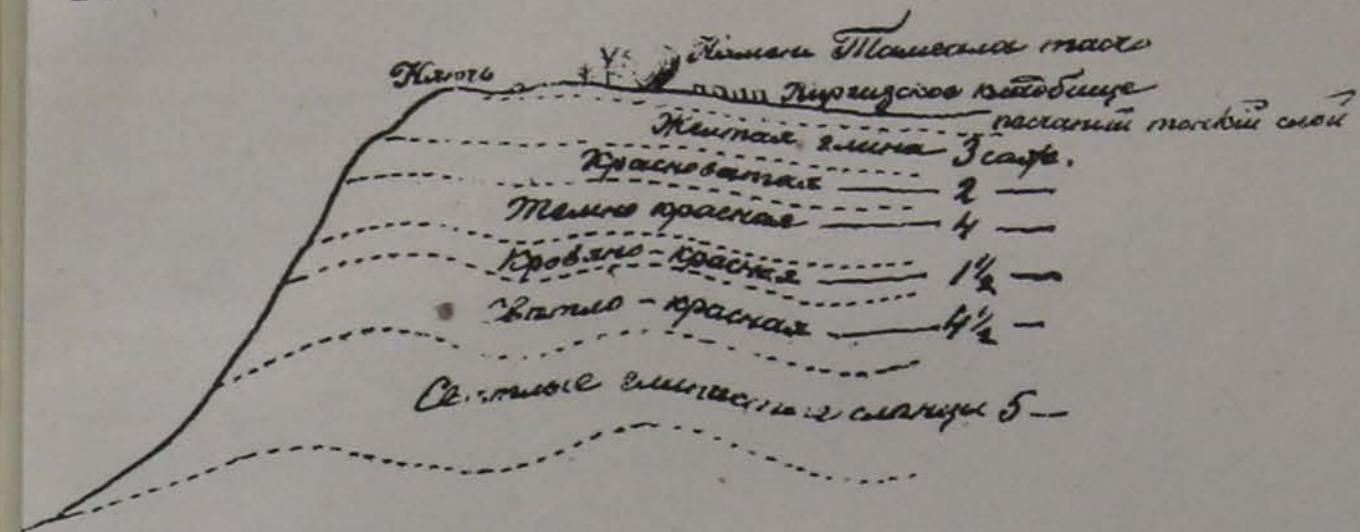 Ключъ
Камень Тамгала тасъ
Киргизское кладбище
песчаный тонкій слой
Желтая глина 3 саж.
Красноватая — 2 —
Темно красная — 4 —
Кровяно-красная — 1 1/2 —
Свѣтло-красная — 4 1/2 —
Свѣтлые глинистые сланцы 5 —